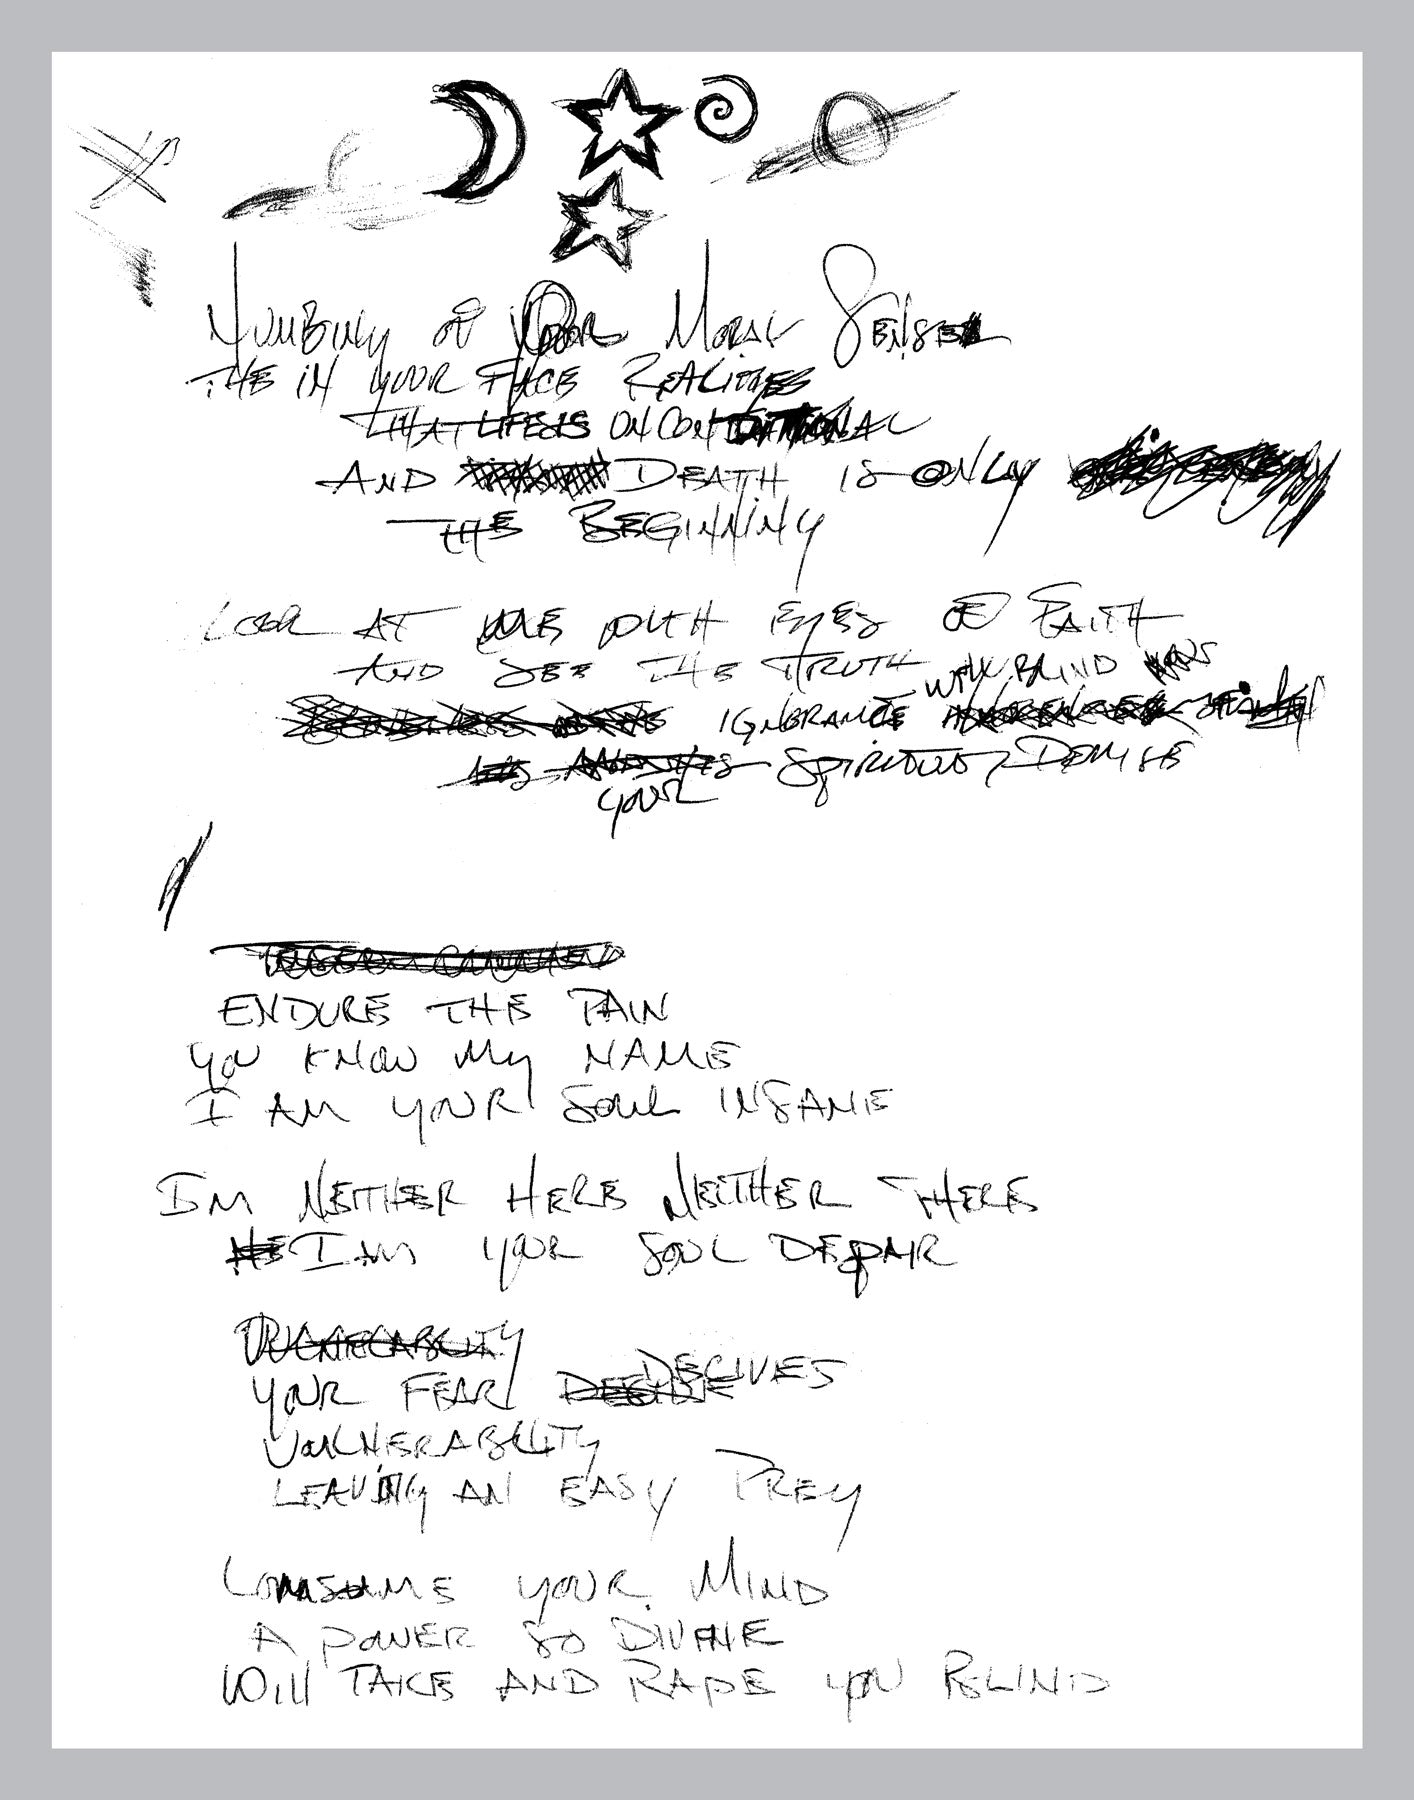 Numbing of Your Moral Sense
The in your face realities
That life is unconditional
And Death is only
The Beginning
Look at me with eyes of Faith
And see the truth
with blind
ignorance
your spiritual Demise
Endure the Pain
You know my name
I am your soul insane
Im Neither Here Neither There
I am your soul Despair
Vulnerability
Your fear Decives
Vulnerability
Leaving an easy Prey
Consume your Mind
A power so Divine
Will take and rape you Blind